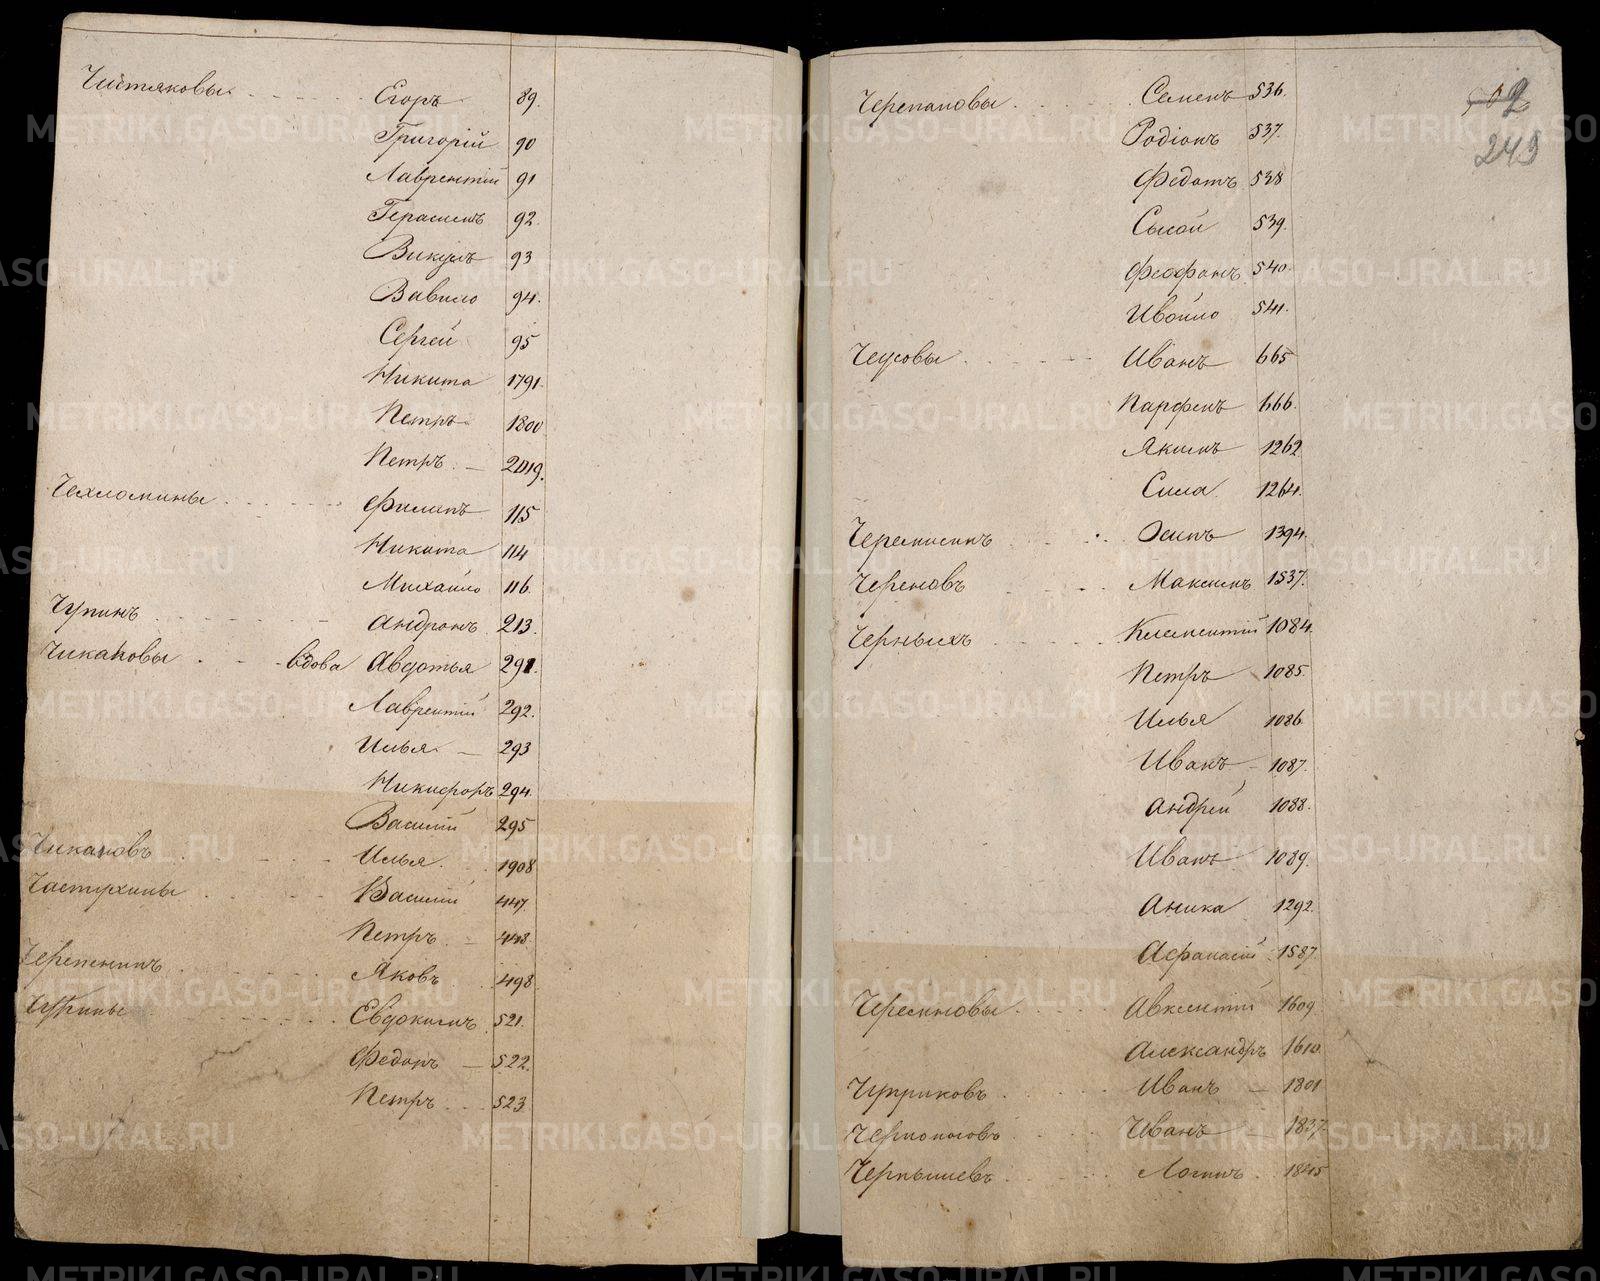 Чистяковы Егоръ 89.
Григорій 90
Лаврентій 91
Герасимъ 92.
Викулъ 93
Вавило 94.
Сергей 95
Никита 1791.
Петръ 1800
Петръ. — 2019.
Чехломины Филипъ 115
Никита 114
Михайло 116.
Чупинъ Андронъ 213.
Чикаковы вдова Авдотья 291.
Лаврентій 292.
Илья — 293
Никифоръ 294.
Василій 295
Илья 1908
Частухины Василій 447.
Петръ 448.
Яковъ 498
Евдокимъ 521.
Федоръ — 522.
Петръ 523
Черепановы Семенъ 536.
Родіонъ 537.
Федотъ 538
Сысой 539.
Феофанъ 540.
Ивойло 541.
249
Чеусовы Иванъ 665
Парфенъ 666.
Якимъ 1262
Сила 1264.
Черемисинъ Осипъ 1394.
Череновъ Максимъ 1537.
Черныхъ Климентій 1084.
Петръ 1085.
Илья 1086
Иванъ 1087.
Андрей 1088.
Иванъ 1089.
Аника 1292.
Афанасій 1587.
Авксентій 1609.
Александръ 1610
Иванъ — 1801
Иванъ — 1837.
Чернышевъ Логинъ 1845
METRIKI.GASO-URAL.RU